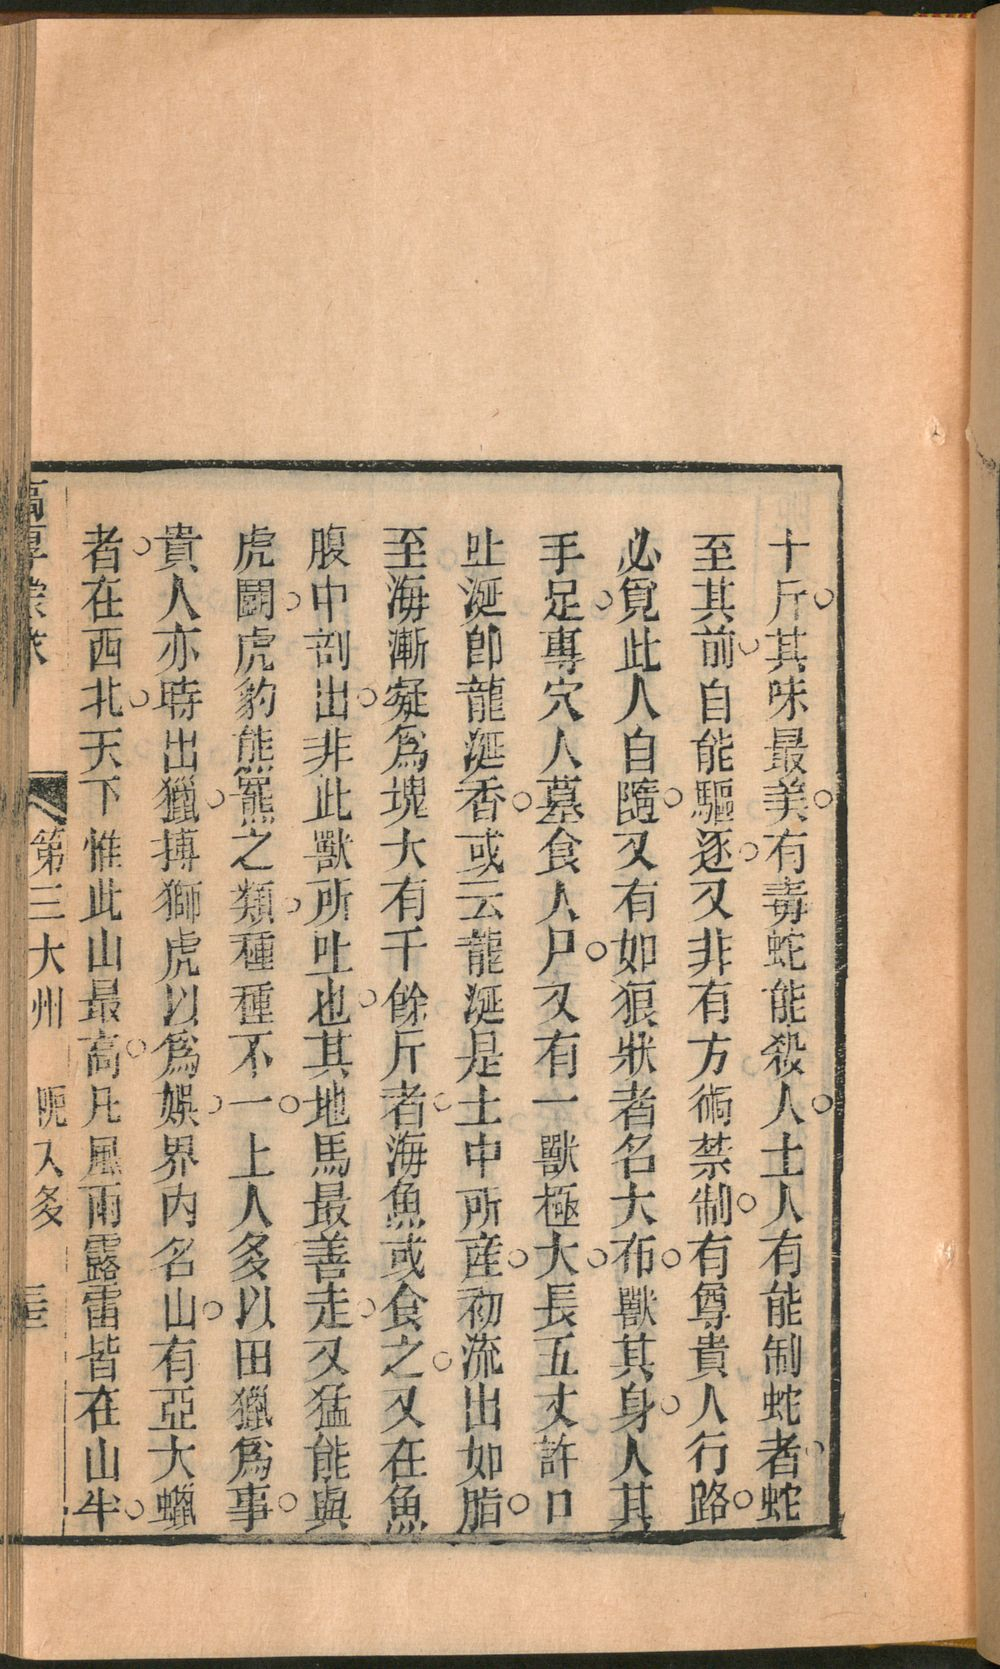 十斤其味最美有毒蛇能殺人土人有能制蛇者蛇
至其前自能驅逐又非有方術禁制有尊貴人行路
必覓此人自隨又有如狼狀者名大布獸其身人其
手足專穴人墓食人尸又有一獸極大長五丈許口
吐涎卽龍涎香或云龍涎是土中所產初流出如脂
至海漸凝爲塊大有千餘斤者海魚或食之又在魚
腹中剖出非此獸所吐也其地馬最善走又猛能與
虎鬪虎豹熊羆之類種種不一上人多以田獵爲事
貴人亦時出獵搏獅虎以爲娛界內名山有亞大蠟
者在西北天下惟此山最高凡風雨露雷皆在山半
第三大州